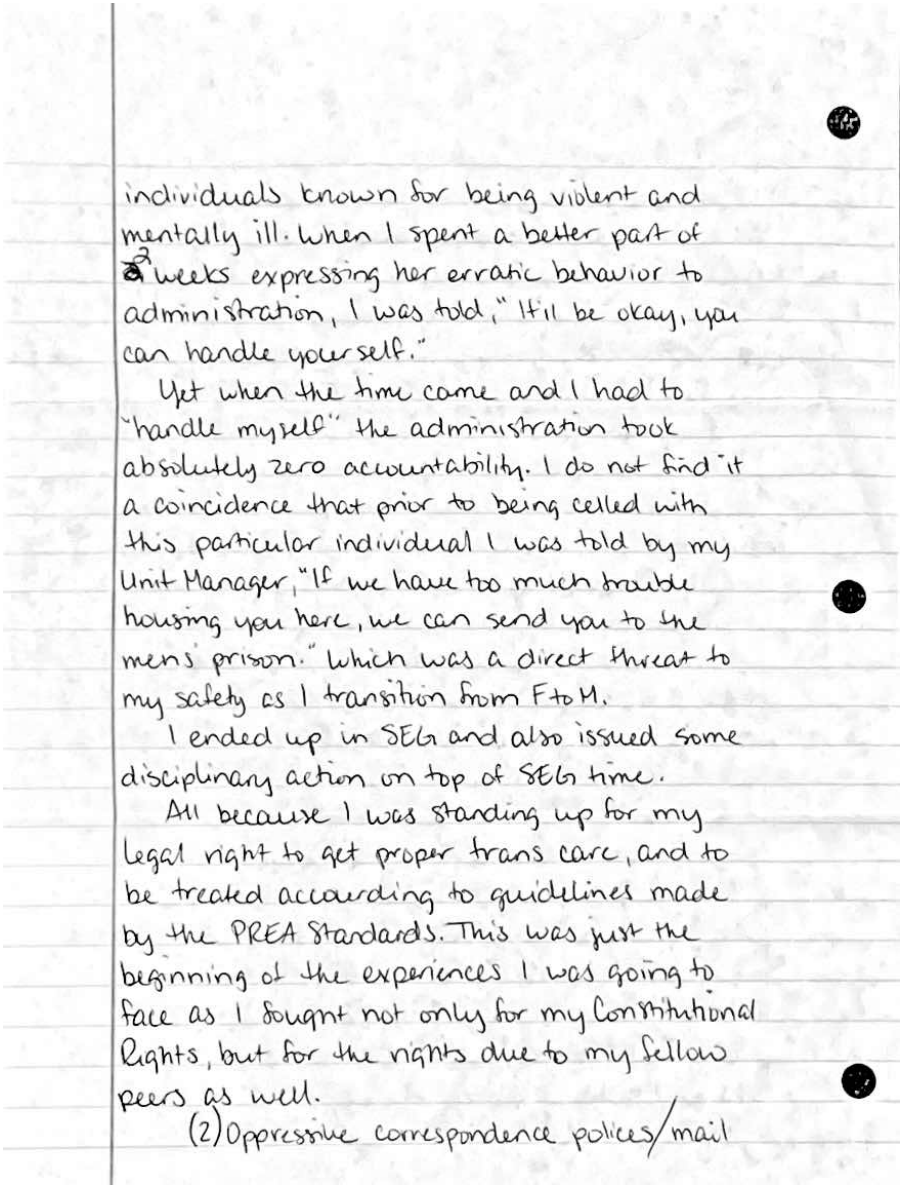 individuals known for being violent and
mentally ill. When I spent a better part of
2 weeks expressing her erratic behavior to
administration, I was told, "It'll be okay, you
can handle yourself."
Yet when the time came and I had to
"handle myself" the administration took
absolutely zero accountability. I do not find it
a coincidence that prior to being celled with
this particular individual I was told by my
Unit Manager, "If we have too much trouble
housing you here, we can send you to the
mens prison." Which was a direct threat to
my safety as I transition from F to M.
I ended up in SEG and also issued some
disciplinary action on top of SEG time.
All because I was standing up for my
legal right to get proper trans care, and to
be treated accourding to guidelines made
by the PREA Standards. This was just the
beginning of the experiences I was going to
face as I fought not only for my Constitutional
Rights, but for the rights due to my fellow
peers as well.
(2) Oppressive correspondence polices/mail